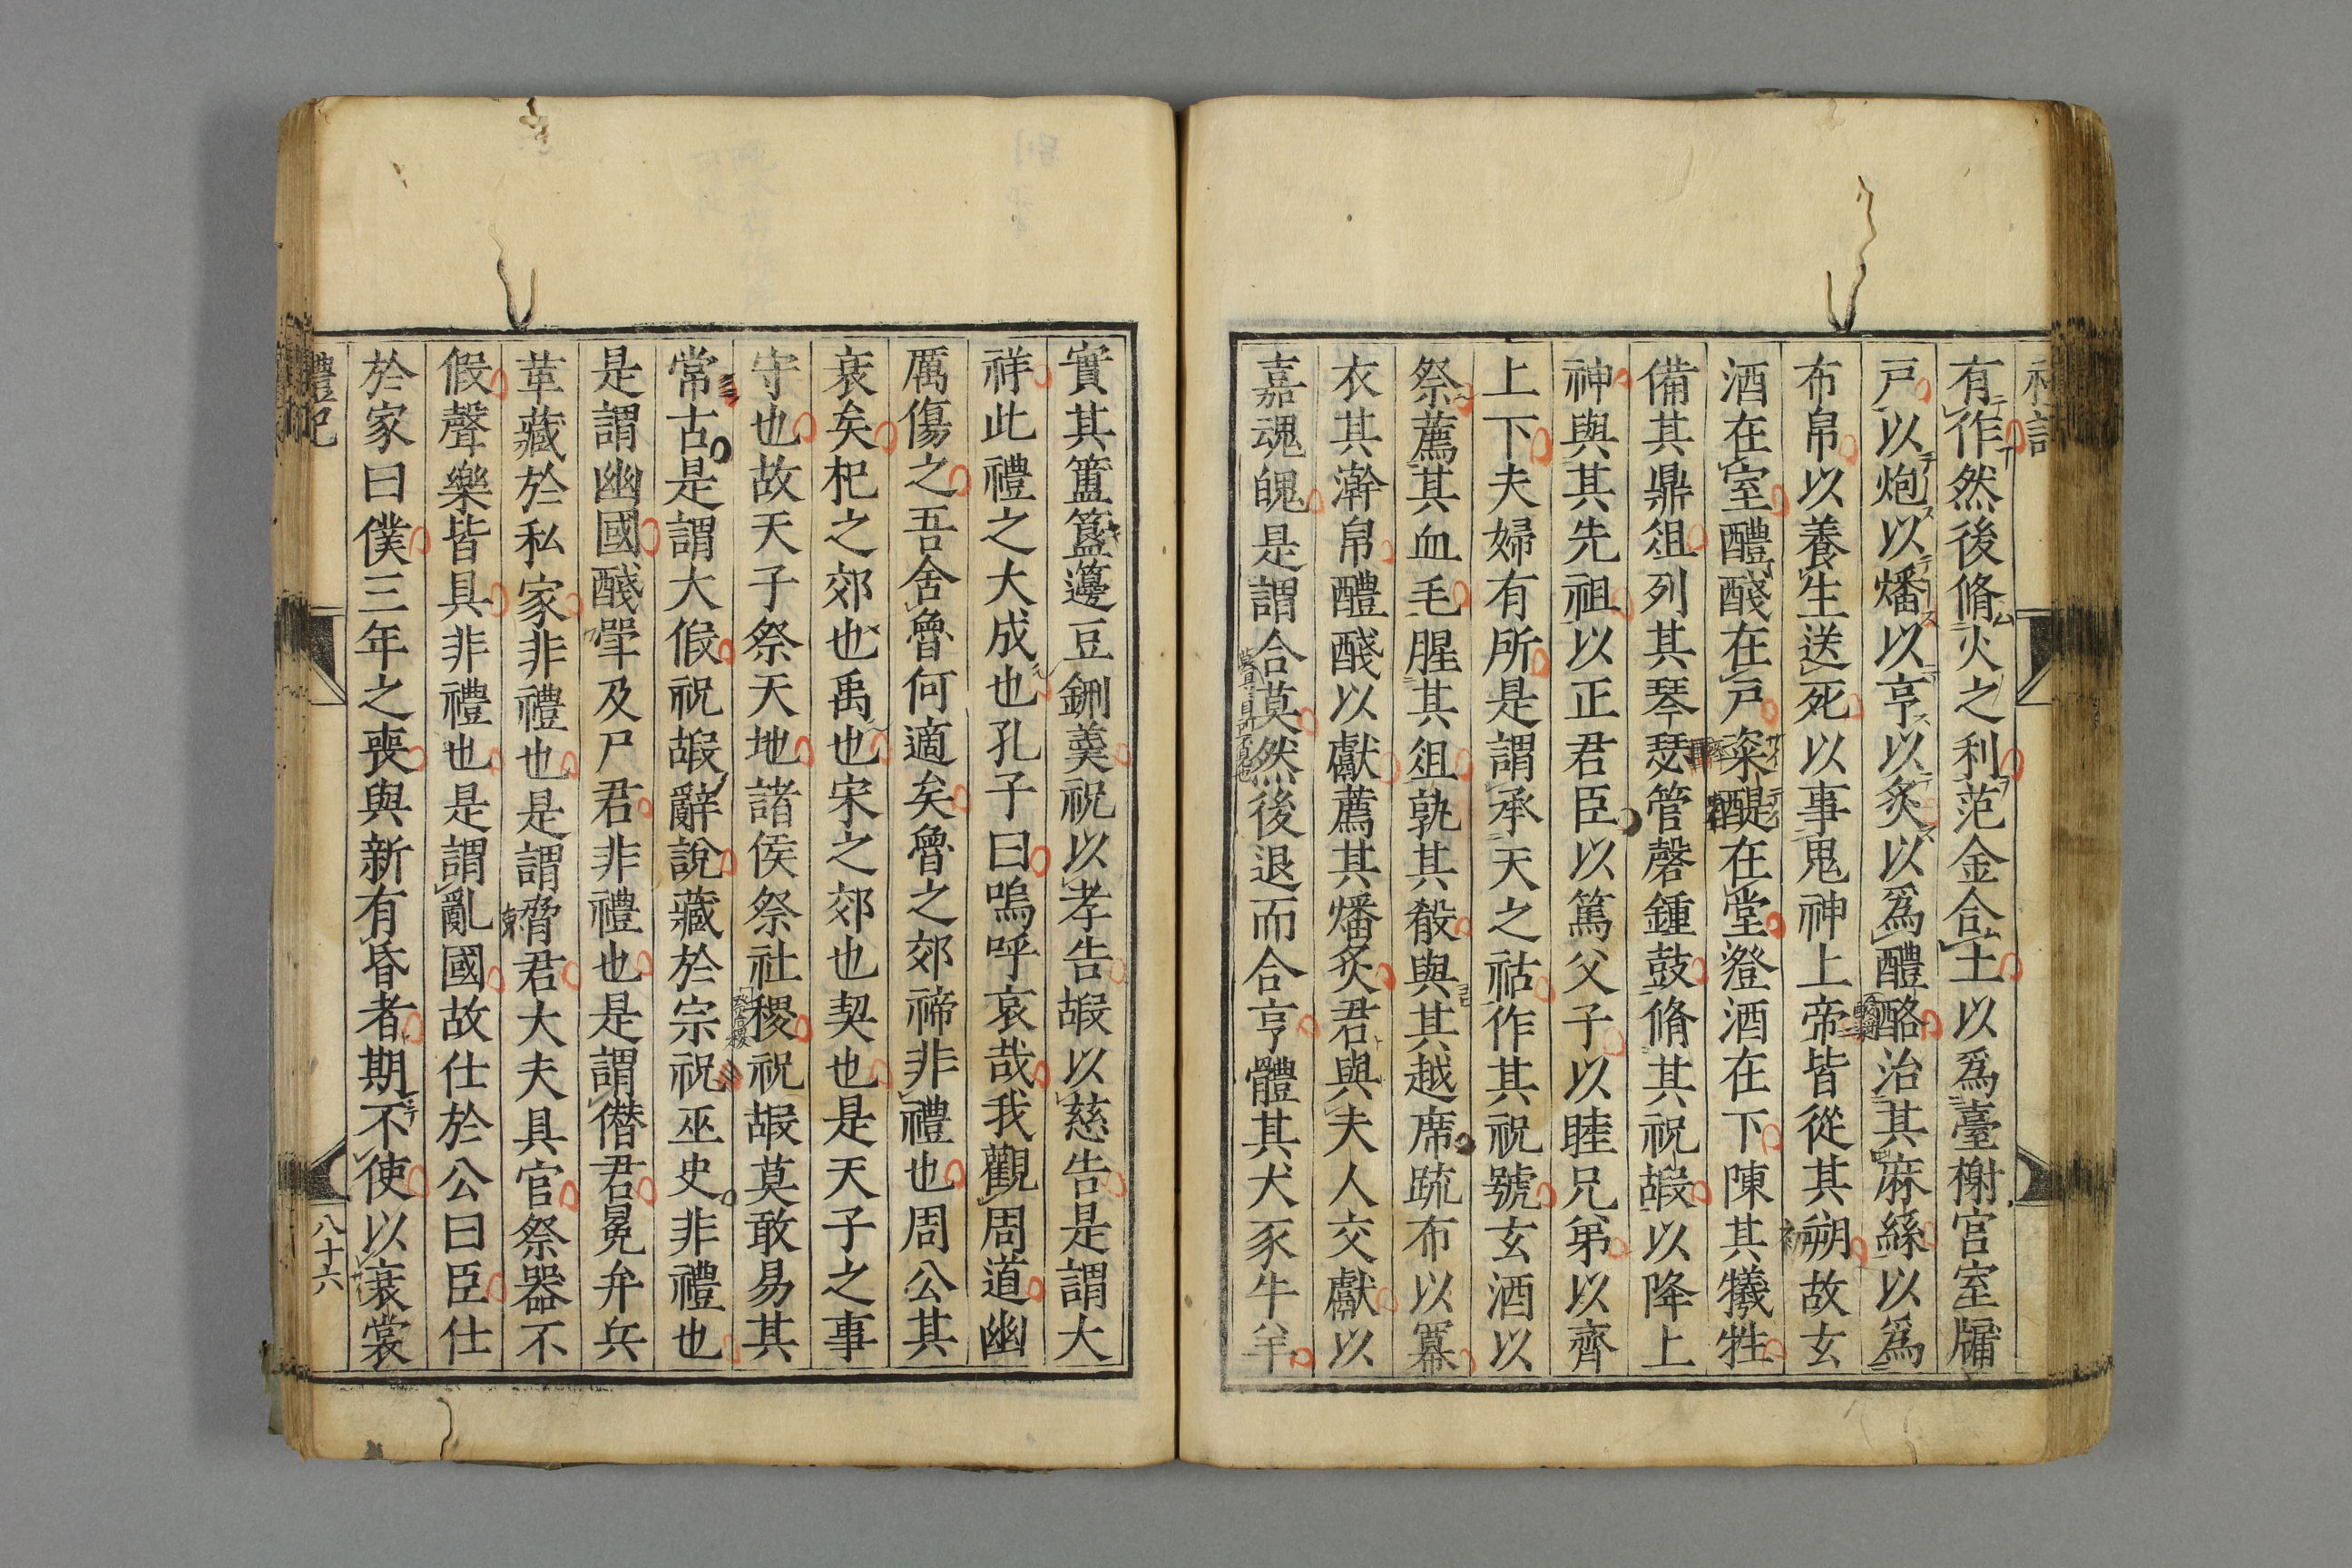 禮記
有作然後脩火之利范金合土以爲臺榭宫室牖
戸以炮以燔以亨以炙以爲醴酪治其麻絲以爲
布帛以養生送死以事鬼神上帝皆從其朔故玄
酒在室醴醆在戸粢醍在堂澄酒在下陳其犧牲
備其鼎俎列其琴瑟管磬鍾鼓脩其祝嘏以降上
神與其先祖以正君臣以篤父子以睦兄弟以齊
上下夫婦有所是謂承天之祜作其祝號玄酒以
祭薦其血毛腥其俎孰其殽與其越席疏布以冪
衣其澣帛醴醆以獻薦其燔炙君與夫人交獻以
嘉魂魄是謂合莫然後退而合亨體其犬豕牛羊
實其簠簋籩豆鉶羹祝以孝告嘏以慈告是謂大
祥此禮之大成也孔子曰嗚呼哀哉我觀周道幽
厲傷之吾舍魯何適矣魯之郊禘非禮也周公其
衰矣杞之郊也禹也宋之郊也契也是天子之事
守也故天子祭天地諸侯祭社稷祝嘏莫敢易其
常古是謂大假祝嘏辭說藏於宗祝巫史非禮也
是謂幽國醆斝及尸君非禮也是謂僭君冕弁兵
革藏於私家非禮也是謂脅君大夫具官祭器不
假聲樂皆具非禮也是謂亂國故仕於公曰臣仕
於家曰僕三年之喪與新有昏者期不使以衰裳
禮記
八十六